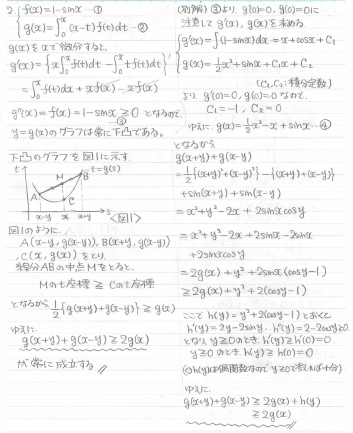 2. f(x)=1-sinx …①
g(x)=∫₀ˣ(x-t)f(t)dt …②
g(x)をxで微分すると、
g'(x)={x∫₀ˣf(t)dt-∫₀ˣtf(t)dt}'
=∫₀ˣf(t)dt+xf(x)-xf(x)
g''(x)=f(x)=1-sinx≧0 となるので
③
y=g(x)のグラフは常に下凸である。
下凸のグラフを図1に示す.
t
t=g(x)
M
B
A
C
x-y x x+y
<図1>
図1のように、
A(x-y, g(x-y)), B(x+y, g(x+y))
C(x, g(x))をとり、
線分ABの中点Mをとると、
Mのt座標≧Cのt座標
となるから 1/2{g(x+y)+g(x-y)}≧g(x)
ゆえに
g(x+y)+g(x-y)≧2g(x)
が常に成立する
(別解) ③より, g'(0)=0, g(0)=0に
注意してg'(x), g(x)を求める.
g'(x)=∫(1-sinx)dx=x+cosx+C₁
g(x)=1/2x²+sinx+C₁x+C₂
(C₁, C₂:積分定数)
より g'(0)=0, g(0)=0なので、
C₁=-1, C₂=0
ゆえに. g(x)=1/2x²-x+sinx…④
となるから
g(x+y)+g(x-y)
=1/2{(x+y)²+(x-y)²}-{(x+y)+(x-y)}
+sin(x+y)+sin(x-y)
=x²+y²-2x+2sinxcosy
=x²+y²-2x+2sinx-2sinx
+2sinxcosy
=2g(x)+y²+2sinx(cosy-1)
≧2g(x)+y²+2(cosy-1)
ここで h(y)=y²+2(cosy-1)とおくと
h'(y)=2y-2siny, h''(y)=2-2cosy≧0.
となり y≧0のとき h'(y)≧h'(0)=0
y≧0のとき、h(y)≧h(0)=0
(∵h(y)は偶関数なのでy≧0で考えれば十分)
ゆえに.
g(x+y)+g(x-y)≧2g(x)+h(y)
≧2g(x)